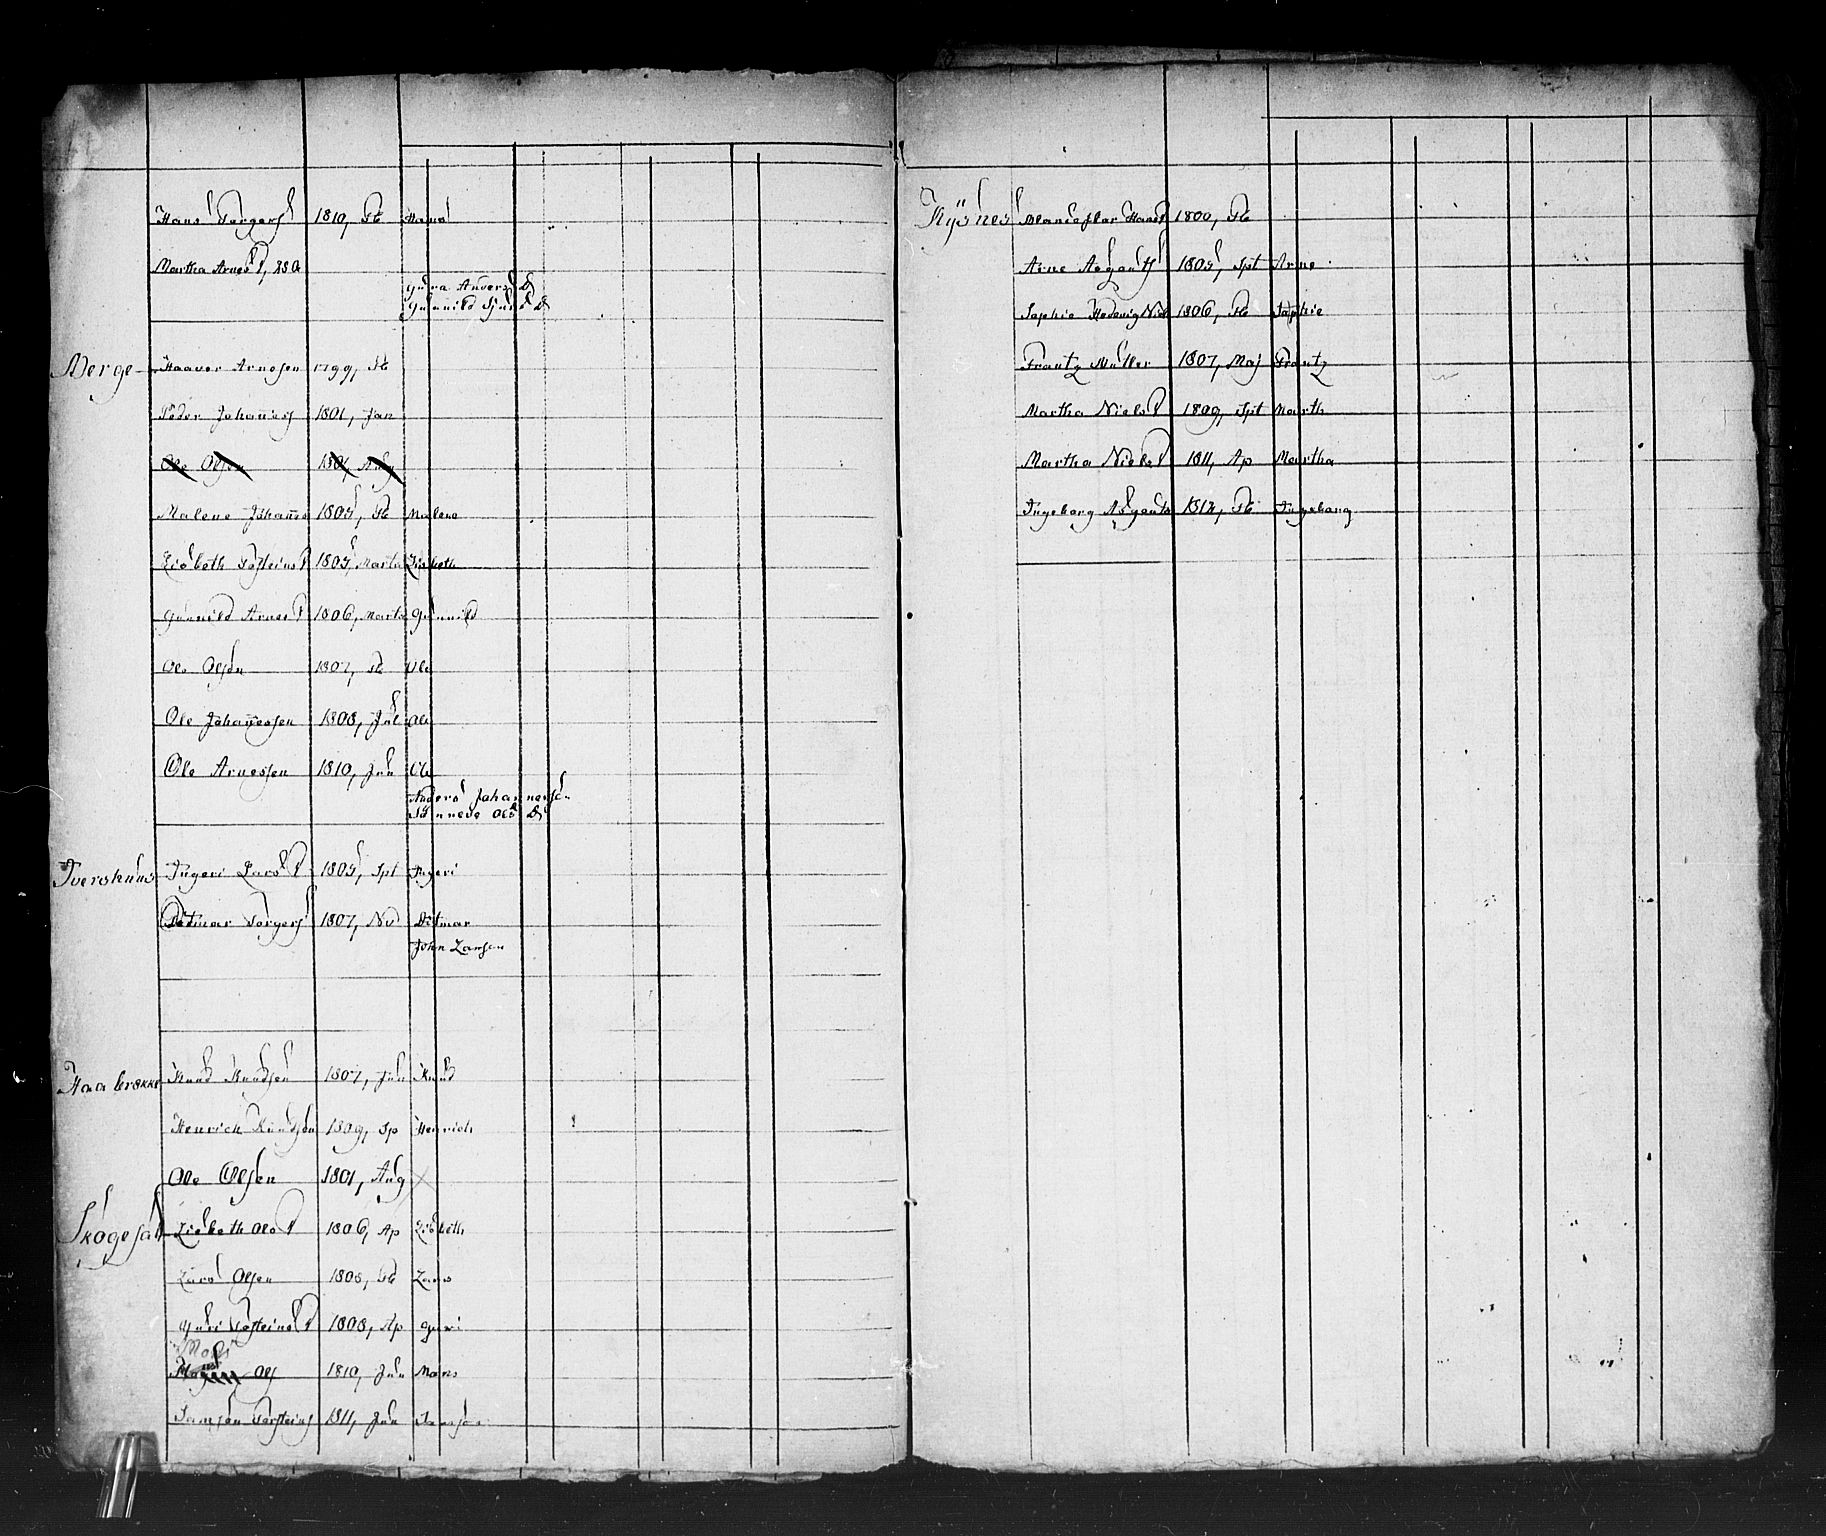 Hans Torgers 1810, Fb Hans
Martha Arnes D, 250
Gura Anders D
Gunnild Sjurs D
Berge Haaver Arnesen 1799, Fb
Peder Johanes 1801, Jan
Ole Olsen 1801, Aug
Malene Johanes 1805, Fb Malene
Lisbeth Tosteins D 1805, Marts Lisbeth
Gunnild Arnes D 1806, Marts Gunnild
Ole Olsen 1807, Fb Ole
Ole Johanessen 1808, Jul Ole
Ole Arnessen 1810, Jun Ole
Anders Johannessen
Sunneve Ols D
Ivershuus Ingeri Lars D 1805, Spt Ingeri
Ditmar Torgers 1807, Nv Ditmar
John Larsen
Haabrække Knud Knudsen 1807, Jun Knud
Henrich Knudsen 1809, Sp Henrich
Ole Olsen 1801, Aug
Skogesal Lisbeth Ols D 1806, Ap Lisbeth
Lars Olsen 1808, Fb Lars
Guri Tosteins D 1808, Ap Guri
Mons
Ols 1810, Jun Mons
Samson Torsteins 1811, Jun Samson
Kysnes Blanceflor Hans D 1800, Fb
Arne Asgauts 1805, Spt Arne
Sophie Hedevig Niels 1806, Fb Sophie
Frantz Müller 1807, Maj Frantz
Martha Niels D 1809, Spt Marth
Martha Niels D 1811, Ap Martha
Ingeborg Asgauts 1812, Fb Ingeborg